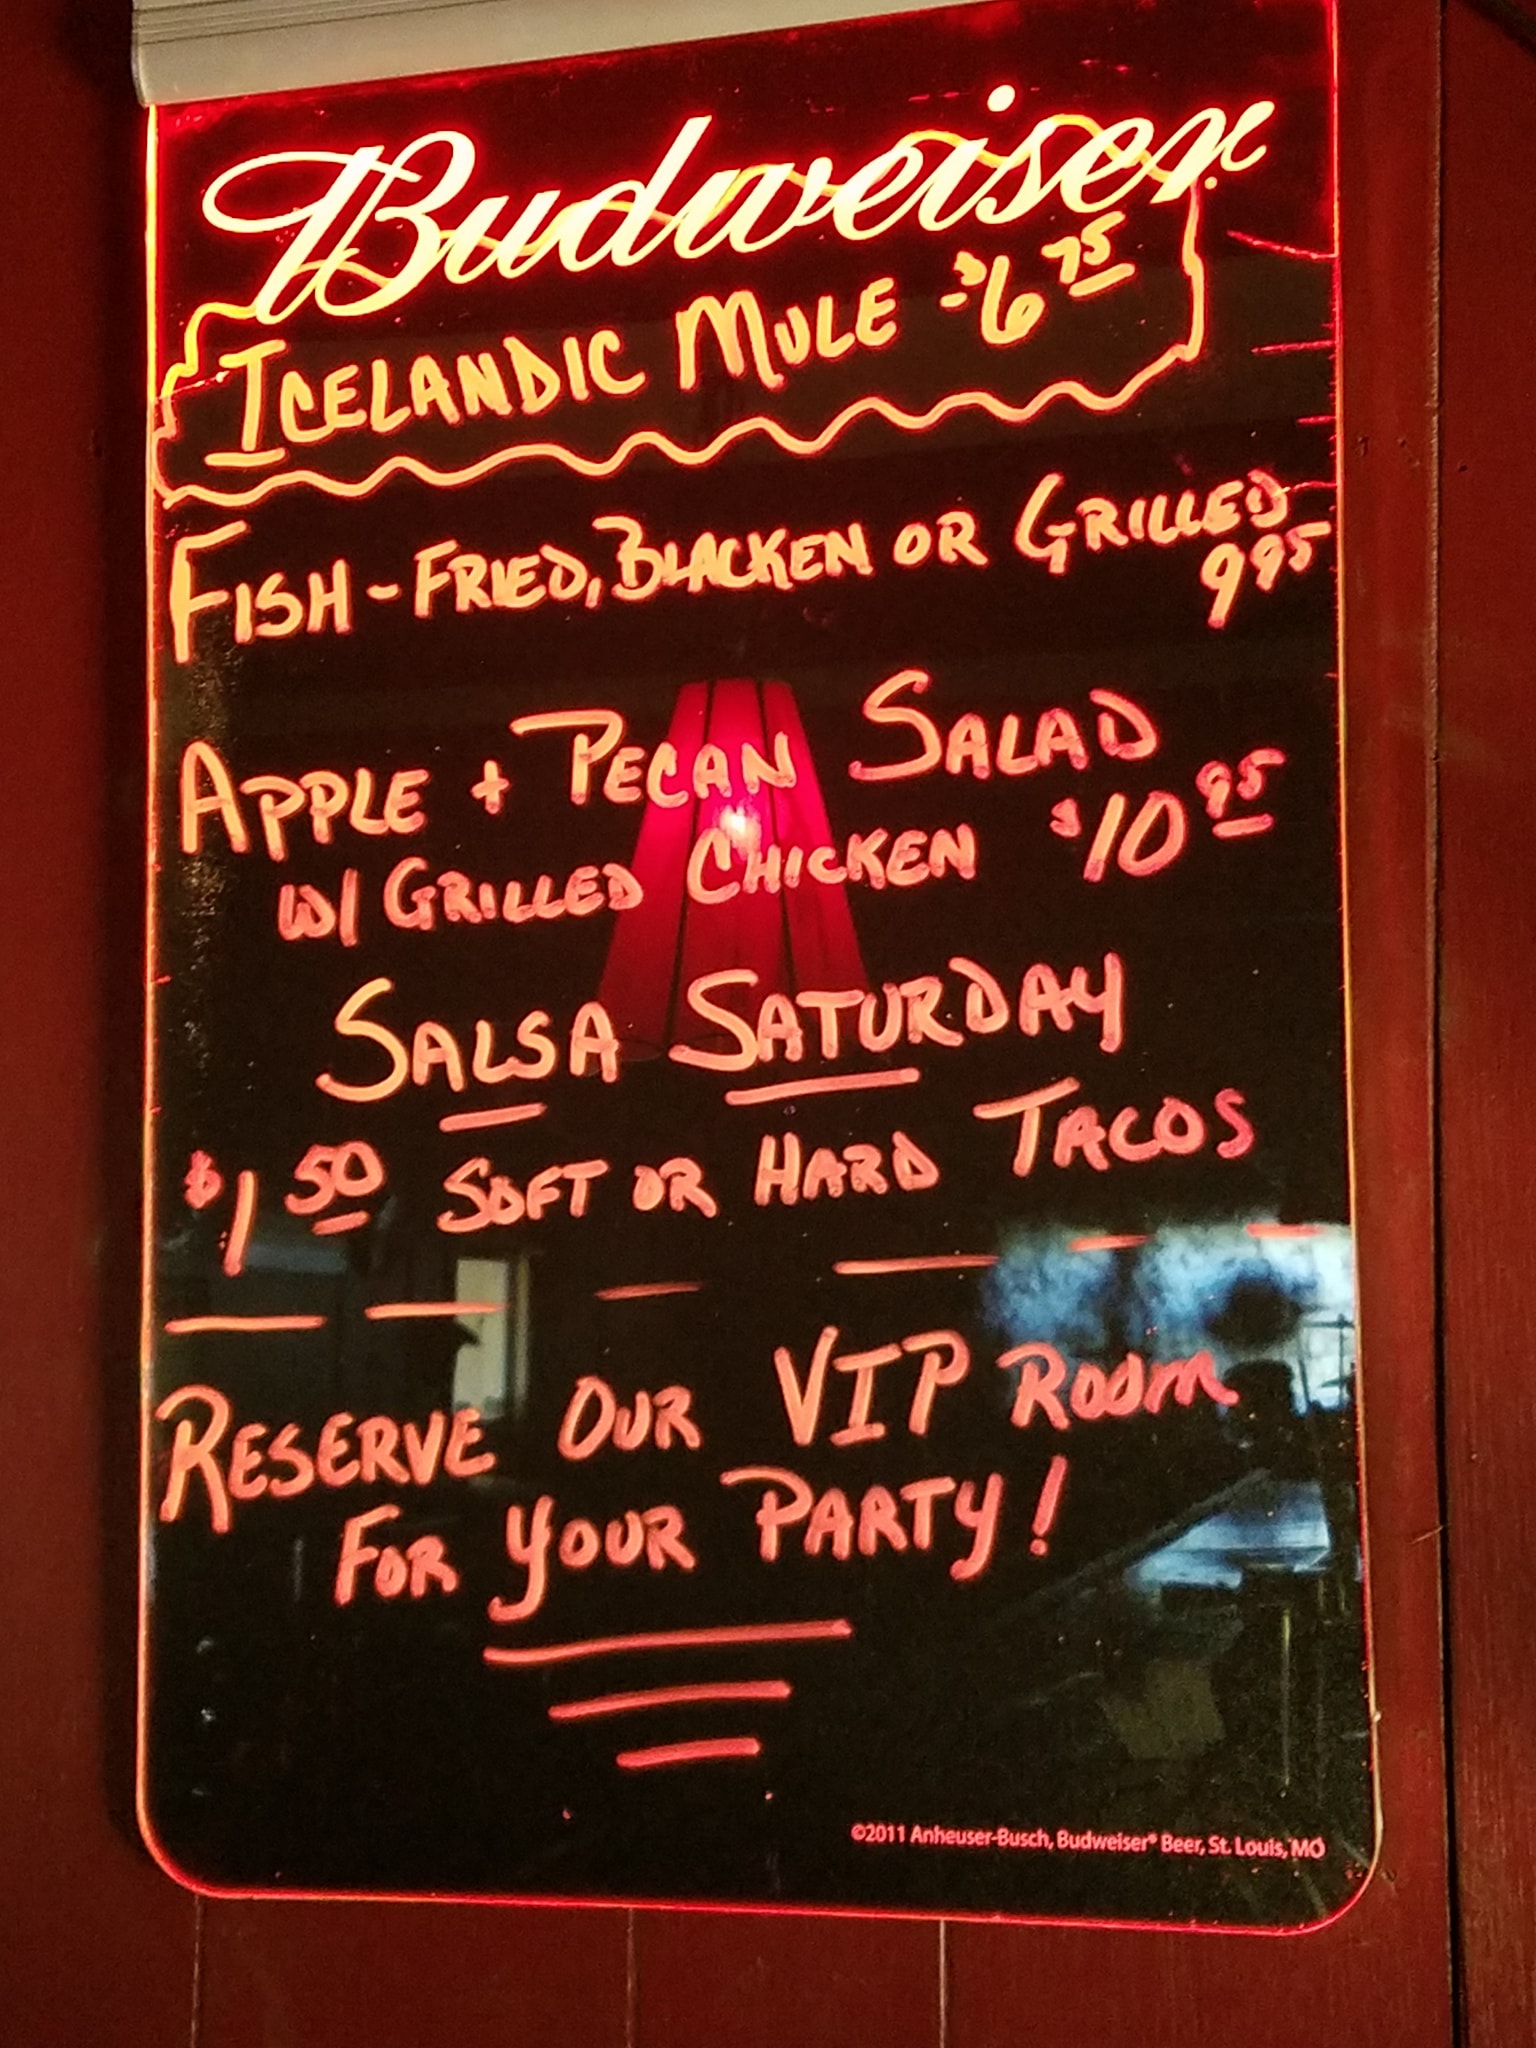 Budweiser
ICELANDIC MULE - $6 75
FISH - FRIED, BLACKEN OR GRILLED
9 95
APPLE + PECAN SALAD
W/ GRILLED CHICKEN $10 95
SALSA SATURDAY
$1 50 SOFT OR HARD TACOS
RESERVE OUR VIP ROOM
FOR YOUR PARTY!
©2011 Anheuser-Busch, Budweiser® Beer, St. Louis, MO